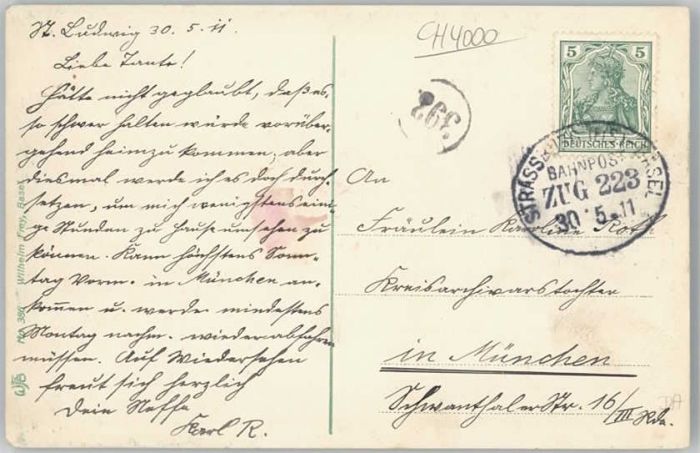 St. Ludwig 30.5.11.
Liebe Tante!
Hätte nicht geglaubt, daß es
so schwer halten würde vorüber-
gehend heimzukommen; aber
diesmal werde ich es doch durch-
setzen, um mich wenigstens eini-
ge Stunden zu Hause umsehen zu
können. Kann höchstens Sonn-
tag Vorm. in München an-
kommen u. werde mindestens
Montag nachm. wieder abfahren
müssen. Auf Wiedersehen
freut sich herzlich
Dein Neffe
Karl R.
Wilhelm Frey, Basel
CH4000
392
5 5
DEUTSCHES REICH
STRASSB BASEL
BAHNPOST
ZUG 223
30 5.11
An
Fräulein Karoline Roth
Kreisarchivarstochter
in München
Schwanthaler Str. 16/III Rda.